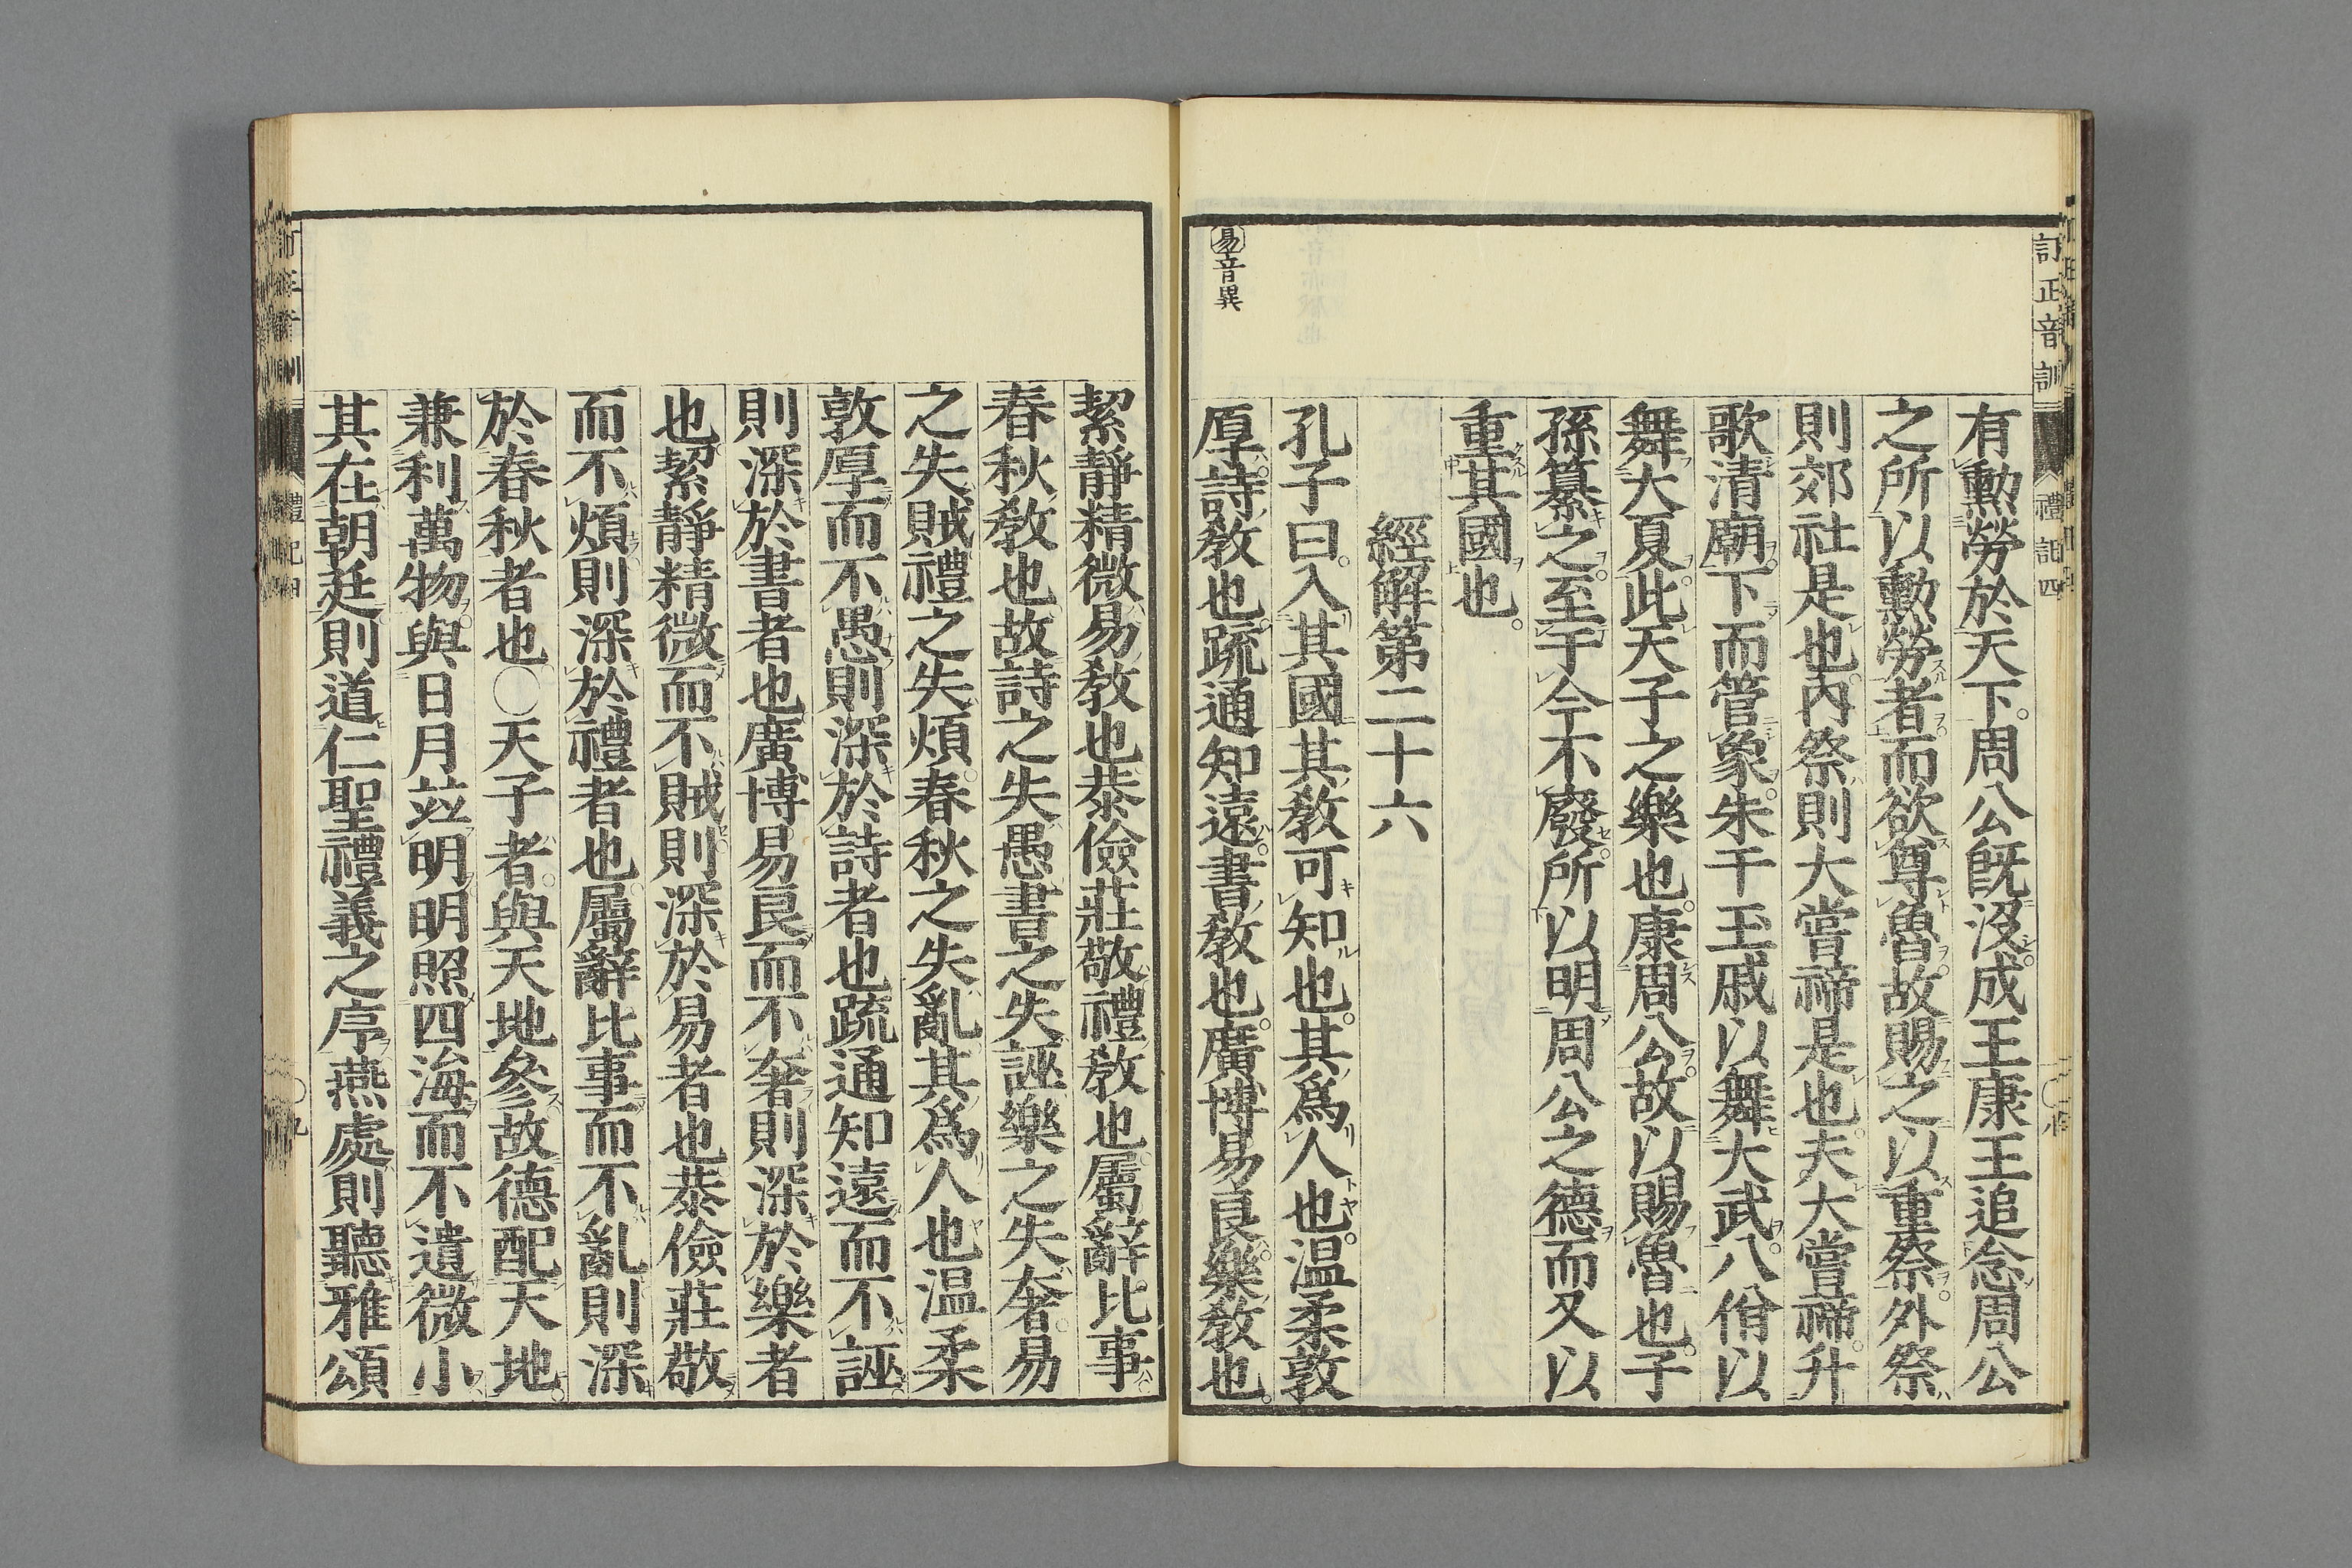 訂正音訓
禮記四
有勳勞於天下。周公旣沒成王康王追念周公
之所以勳勞者而欲尊魯故賜之以重祭外祭
則郊社是也內祭則大嘗禘是也夫大嘗禘升
歌清廟下而管象朱干玉戚以舞大武八佾以
舞大夏此天子之樂也康周公故以賜魯也子
孫纂之至于今不廢所以明周公之德而又以
重其國也。
經解第二十六
孔子曰入其國其敎可知也其爲人也温柔敦
厚詩敎也疏通知遠書敎也廣博易良樂敎也
易音異
絜靜精微易敎也恭儉莊敬禮敎也屬辭比事
春秋敎也故詩之失愚書之失誣樂之失奢易
之失賊禮之失煩春秋之失亂其爲人也温柔
敦厚而不愚則深於詩者也疏通知遠而不誣
則深於書者也廣博易良而不奢則深於樂者
也絜靜精微而不賊則深於易者也恭儉莊敬
而不煩則深於禮者也屬辭比事而不亂則深
於春秋者也○天子者與天地參故德配天地
兼利萬物與日月竝明明照四海而不遺微小
其在朝廷則道仁聖禮義之序燕處則聽雅頌
禮記四
九